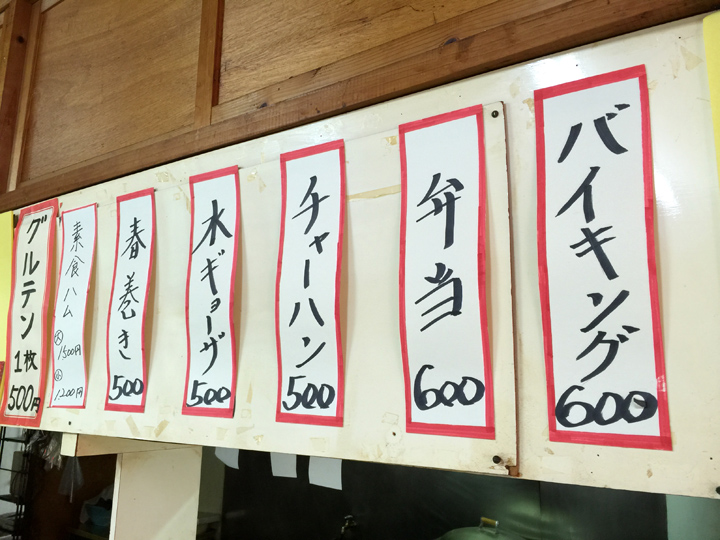 バイキング
600
弁当
600
チャーハン
500
水ギョーザ
500
春巻き
500
素食ハム
大 1500円
小 1200円
グルテン
1枚
500円